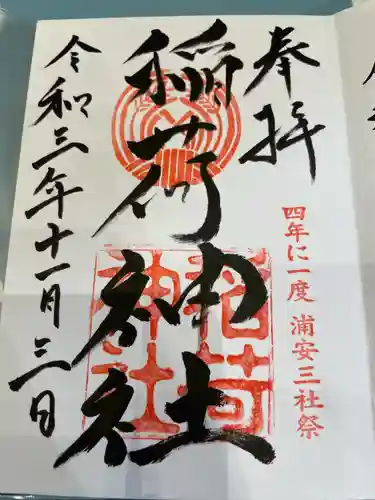 奉拝
四年に一度 浦安三社祭
稲荷神社
稲荷神社
令和三年十一月三日